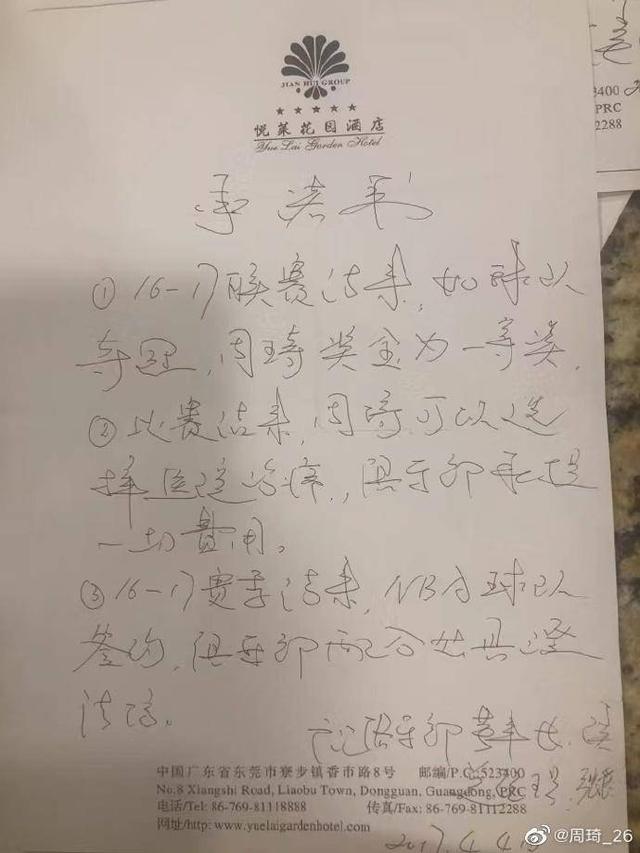 JIAN HUI GROUP
悦莱花园酒店
Yue Lai Garden Hotel
承诺书
① 16-17联赛结束,如球队
夺冠,周琦奖金为一等奖,
② 比赛结束,周琦可以选
择医院治疗,俱乐部承担
一切费用。
③ 16-17赛季结束,NBA球队
签约,俱乐部配合出具澄
清信。
俱乐部
中国广东省东莞市寮步镇香市路8号 邮编/P.C:523400
No.8 Xiangshi Road, Liaobu Town, Dongguan, Guangdong, PRC
电话/Tel: 86-769-81118888 传真/Fax: 86-769-81112288
网址/http: www.yuelaigardenhotel.com
2017.4.4
3400
PRC
2288
@周琦_26